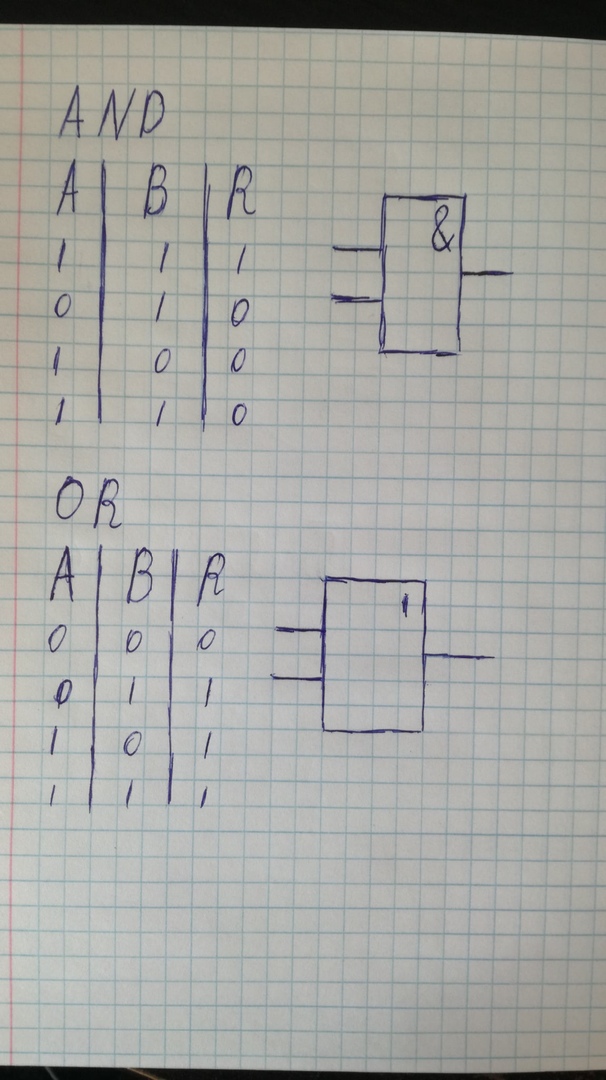 AND
A B R
1 1 1 &
0 1 0
1 0 0
1 1 0
OR
A B R
0 0 0 1
0 1 1
1 0 1
1 1 1